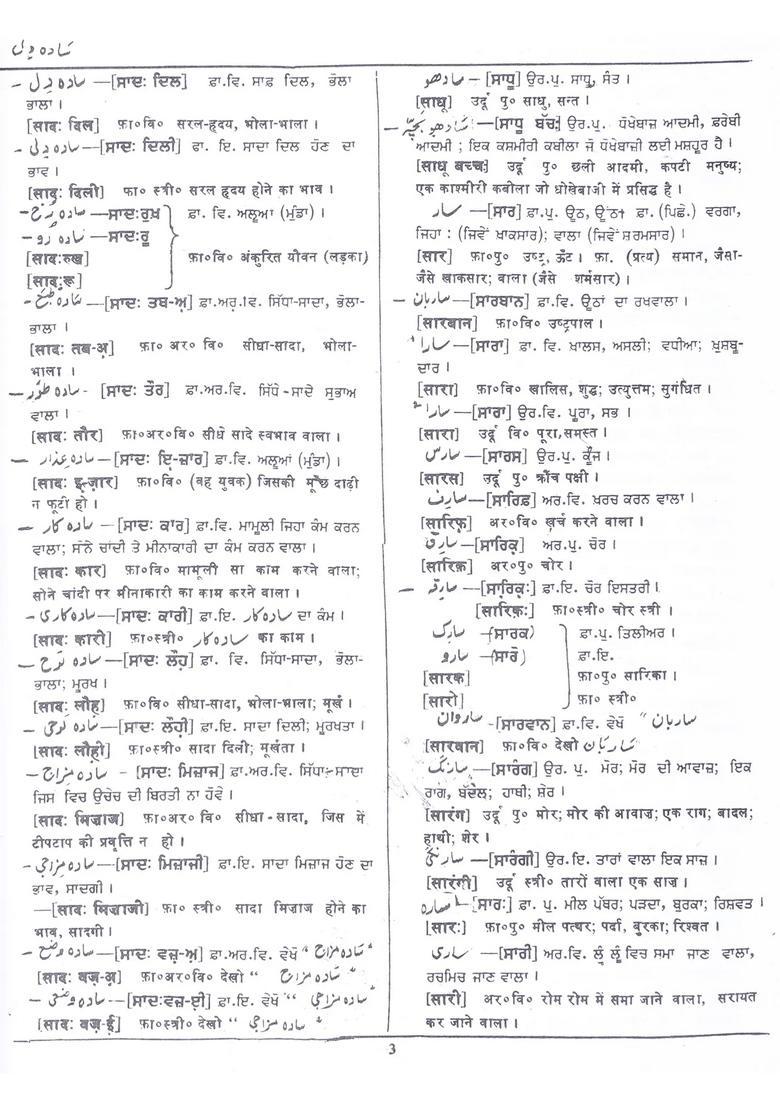 سادہ دِلی
سادہ دِل —[ਸਾਦਃ ਦਿਲ] ਫ਼ਾ.ਵਿ. ਸਾਫ਼ ਦਿਲ, ਭੋਲਾ
ਭਾਲਾ।
[सादः दिल] फ़ा०वि० सरल-हृदय, भोला-भाला।
سادہ دِلی —[ਸਾਦਃ ਦਿਲੀ] ਫਾ. ਇ. ਸਾਦਾ ਦਿਲ ਹੋਣ ਦਾ
ਭਾਵ।
[सादः दिली] फा० स्त्री० सरल हृदय होने का भाव।
سادہ رُخ —ਸਾਦਃਰੁਖ਼ ਫ਼ਾ. ਵਿ. ਅਲੂਆ (ਮੁੰਡਾ)।
سادہ رو —ਸਾਦਃਰੂ
[सादःरुख फ़ा०वि० अंकुरित यौवन (लड़का)
[सादःरू
سادہ طبع —[ਸਾਦਃ ਤਬ-ਅ਼] ਫ਼ਾ.ਅਰ.ਵਿ. ਸਿੱਧਾ-ਸਾਦਾ, ਭੋਲਾ-
ਭਾਲਾ।
[सादः तब-अ़] फ़ा० अर० वि० सीधा-सादा, भोला-
भाला।
سادہ طَور - [ਸਾਦਃ ਤੌਰ] ਫ਼ਾ.ਅਰ.ਵਿ. ਸਿੱਧੇ-ਸਾਦੇ ਸੁਭਾਅ
ਵਾਲਾ।
[सादः तौर] फ़ा०अर०वि० सीधे सादे स्वभाव वाला।
سادہ عِذار —[ਸਾਦਃ ਇ-ਜ਼ਾਰ] ਫ਼ਾ.ਵਿ. ਅਲੂਆਂ (ਮੁੰਡਾ)।
[सादः इ-ज़ार] फ़ा०वि० (वह युवक) जिसकी मूँछ दाढ़ी
न फूटी हो।
سادہ کار —[ਸਾਦਃ ਕਾਰ] ਫ਼ਾ.ਵਿ. ਮਾਮੂਲੀ ਜਿਹਾ ਕੰਮ ਕਰਨ
ਵਾਲਾ; ਸੋਨੇ ਚਾਂਦੀ ਤੇ ਮੀਨਾਕਾਰੀ ਦਾ ਕੰਮ ਕਰਨ ਵਾਲਾ।
[सादः कार] फ़ा०वि० मामूली सा काम करने वाला;
सोने चांदी पर मीनाकारी का काम करने वाला।
سادہ کاری —[ਸਾਦਃ ਕਾਰੀ] ਫ਼ਾ.ਇ. سادہ کار ਦਾ ਕੰਮ।
[सादः कारी] फ़ा०स्त्री० سادہ کار का काम।
سادہ لَوح —[ਸਾਦਃ ਲੌਹ਼] ਫ਼ਾ. ਵਿ. ਸਿੱਧਾ-ਸਾਦਾ, ਭੋਲਾ-
ਭਾਲਾ; ਮੂਰਖ।
[सादः लौह] फ़ा०वि० सीधा-सादा, भोला-भाला; मूर्ख।
سادہ لَوحی —[ਸਾਦਃ ਲੌਹ਼ੀ] ਫ਼ਾ.ਇ. ਸਾਦਾ ਦਿਲੀ; ਮੂਰਖਤਾ।
[सादः लौही] फ़ा०स्त्री० सादा दिली; मूर्खता।
سادہ مزاج - [ਸਾਦਃ ਮਿਜ਼ਾਜ] ਫ਼ਾ.ਅਰ.ਵਿ. ਸਿੱਧਾ-ਸਾਦਾ
ਜਿਸ ਵਿਚ ਉਚੇਚ ਦੀ ਬਿਰਤੀ ਨਾ ਹੋਵੇ।
[सादः मिज़ाज] फ़ा०अर० वि० सीधा-सादा, जिस में
टीपटाप की प्रवृत्ति न हो।
سادہ مزاجی —[ਸਾਦਃ ਮਿਜ਼ਾਜੀ] ਫ਼ਾ.ਇ. ਸਾਦਾ ਮਿਜ਼ਾਜ ਹੋਣ ਦਾ
ਭਾਵ, ਸਾਦਗੀ।
—[सादः मिज़ाजी] फ़ा० स्त्री० सादा मिज़ाज होने का
भाव, सादगी।
سادہ وضع —[ਸਾਦਃ ਵਜ਼-ਅ] ਫ਼ਾ.ਅਰ.ਵਿ. ਵੇਖੋ "سادہ مزاج"
[सादः वज़-अ़] फ़ा०अर०वि० देखो "سادہ مزاج"
سادہ وضعی —[ਸਾਦਃਵਜ਼-ਈ] ਫ਼ਾ.ਇ. ਵੇਖੋ "سادہ مزاجی"
[सादः वज़-ई] फ़ा०स्त्री० देखो "سادہ مزاجی"
سادھو —[ਸਾਧੂ] ਉਰ.ਪੁ. ਸਾਧੂ, ਸੰਤ।
[साधू] उर्दू पु० साधु, सन्त।
سادھو بچّہ —[ਸਾਧੂ ਬੱਚਃ] ਉਰ.ਪੁ. ਧੋਖੇਬਾਜ਼ ਆਦਮੀ, ਫ਼ਰੇਬੀ
ਆਦਮੀ; ਇਕ ਕਸ਼ਮੀਰੀ ਕਬੀਲਾ ਜੋ ਧੋਖੇਬਾਜ਼ੀ ਲਈ ਮਸ਼ਹੂਰ ਹੈ।
[साधू बच्चः] उर्दू पु० छली आदमी, कपटी मनुष्य;
एक काश्मीरी कबीला जो धोखेबाजी में प्रसिद्ध है।
سار —[ਸਾਰ] ਫ਼ਾ.ਪੁ. ਊਠ, ਊਂਠ। ਫ਼ਾ. (ਪਿਛੇ.) ਵਰਗਾ,
ਜਿਹਾ: (ਜਿਵੇਂ ਖਾਕਸਾਰ); ਵਾਲਾ (ਜਿਵੇਂ ਸ਼ਰਮਸਾਰ)।
[सार] फ़ा०पु० उष्ट्र, ऊँट। फा. (प्रत्य) समान, जैसा-
जैसे खाकसार; वाला (जैसे शर्मसार)।
ساربان —[ਸਾਰਬਾਨ] ਫ਼ਾ.ਵਿ. ਊਠਾਂ ਦਾ ਰਖਵਾਲਾ।
[सारबान] फ़ा०वि० उष्ट्रपाल।
سارا ¹ —[ਸਾਰਾ] ਫ਼ਾ. ਵਿ. ਖ਼ਾਲਸ, ਅਸਲੀ; ਵਧੀਆ; ਖ਼ੁਸ਼ਬੂ-
ਦਾਰ।
[सारा] फ़ा०वि० खालिस, शुद्ध; उत्युत्तम; सुगंधित।
سارا ² —[ਸਾਰਾ] ਉਰ.ਵਿ. ਪੂਰਾ, ਸਭ।
[सारा] उर्दू वि० पूरा,समस्त।
سارس —[ਸਾਰਸ] ਉਰ.ਪੁ. ਕੂੰਜ।
[सारस] उर्दू पु० क्रौंच पक्षी।
سارِف —[ਸਾਰਿਫ਼] ਅਰ.ਵਿ. ਖ਼ਰਚ ਕਰਨ ਵਾਲਾ।
[सारिफ़] अर०वि० ख़र्च करने वाला।
سارِق —[ਸਾਰਿਕ਼] ਅਰ.ਪੁ. ਚੋਰ।
[सारिक़] अर०पु० चोर।
سارِقہ —[ਸਾਰਿਕ਼ਃ] ਫ਼ਾ.ਇ. ਚੋਰ ਇਸਤਰੀ।
[सारिक़ः] फ़ा०स्त्री० चोर स्त्री।
سارک —(ਸਾਰਕ) ਫ਼ਾ.ਪੁ. ਤਿਲੀਅਰ।
سارو —(ਸਾਰੋ) ਫ਼ਾ.ਇ.
[सारक] फ़ा०पु० सारिका।
[सारो] फ़ा० स्त्री०
ساروان -[ਸਾਰਵਾਨ] ਫ਼ਾ.ਵਿ. ਵੇਖੋ "ساربان
[सारवान] फ़ा०वि० देखो ساربان
سارنگ —[ਸਾਰੰਗ] ਉਰ. ਪੁ. ਮੋਰ; ਮੋਰ ਦੀ ਆਵਾਜ਼; ਇਕ
ਰਾਗ, ਬੱਦਲ; ਹਾਥੀ; ਸ਼ੇਰ।
[सारंग] उर्दू पु० मोर; मोर की आवाज; एक राग; बादल;
हाथी; शेर।
سارنگی —[ਸਾਰੰਗੀ] ਉਰ.ਇ. ਤਾਰਾਂ ਵਾਲਾ ਇਕ ਸਾਜ਼।
[सारंगी] उर्दू स्त्री० तारों वाला एक साज़।
سارہ —[ਸਾਰਃ] ਫ਼ਾ. ਪੁ. ਮੀਲ ਪੱਥਰ; ਪੜਦਾ, ਬੁਰਕਾ; ਰਿਸ਼ਵਤ।
[सारः] फ़ा०पु० मील पत्थर; पर्दा, बुरका; रिश्वत।
ساری —[ਸਾਰੀ] ਅਰ.ਵਿ. ਲੂੰ ਲੂੰ ਵਿਚ ਸਮਾ ਜਾਣ ਵਾਲਾ,
ਰਚਮਿਚ ਜਾਣ ਵਾਲਾ।
[सारी] अर०वि० रोम रोम में समा जाने वाला, सरायत
कर जाने वाला।
3